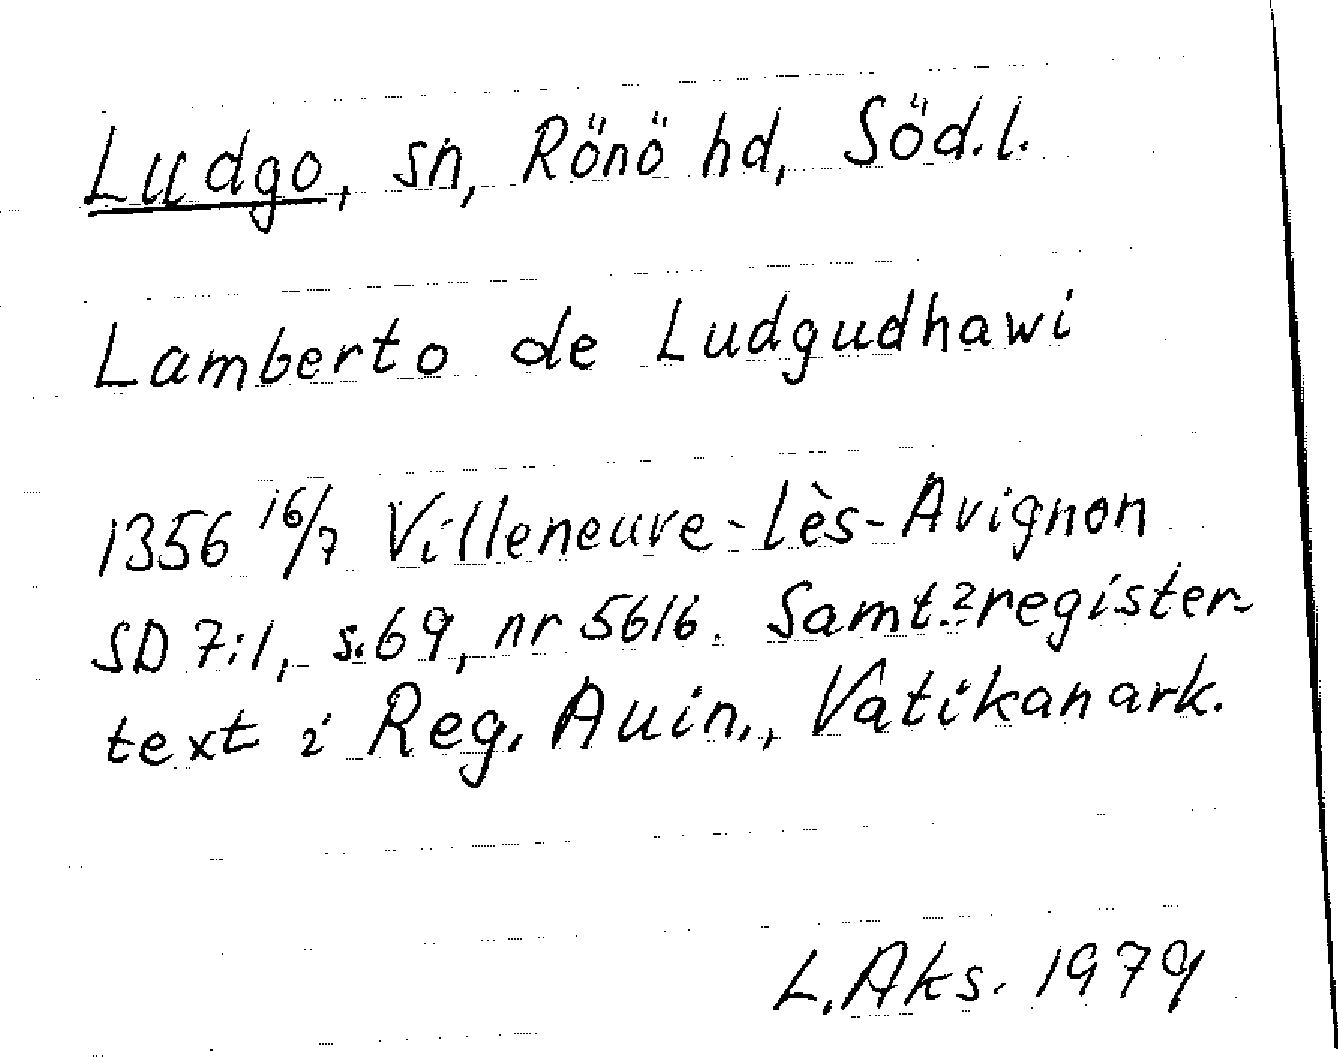 Ludgo, sn, Rönö hd, Söd.l.
Lamberto de Ludgudhawi
1356 16/7 Villeneuve-lès-Avignon
SD 7:1, s.69, nr 5616. Samt.?register-
text i Reg. Auin., Vatikanark.
L.Aks. 1979